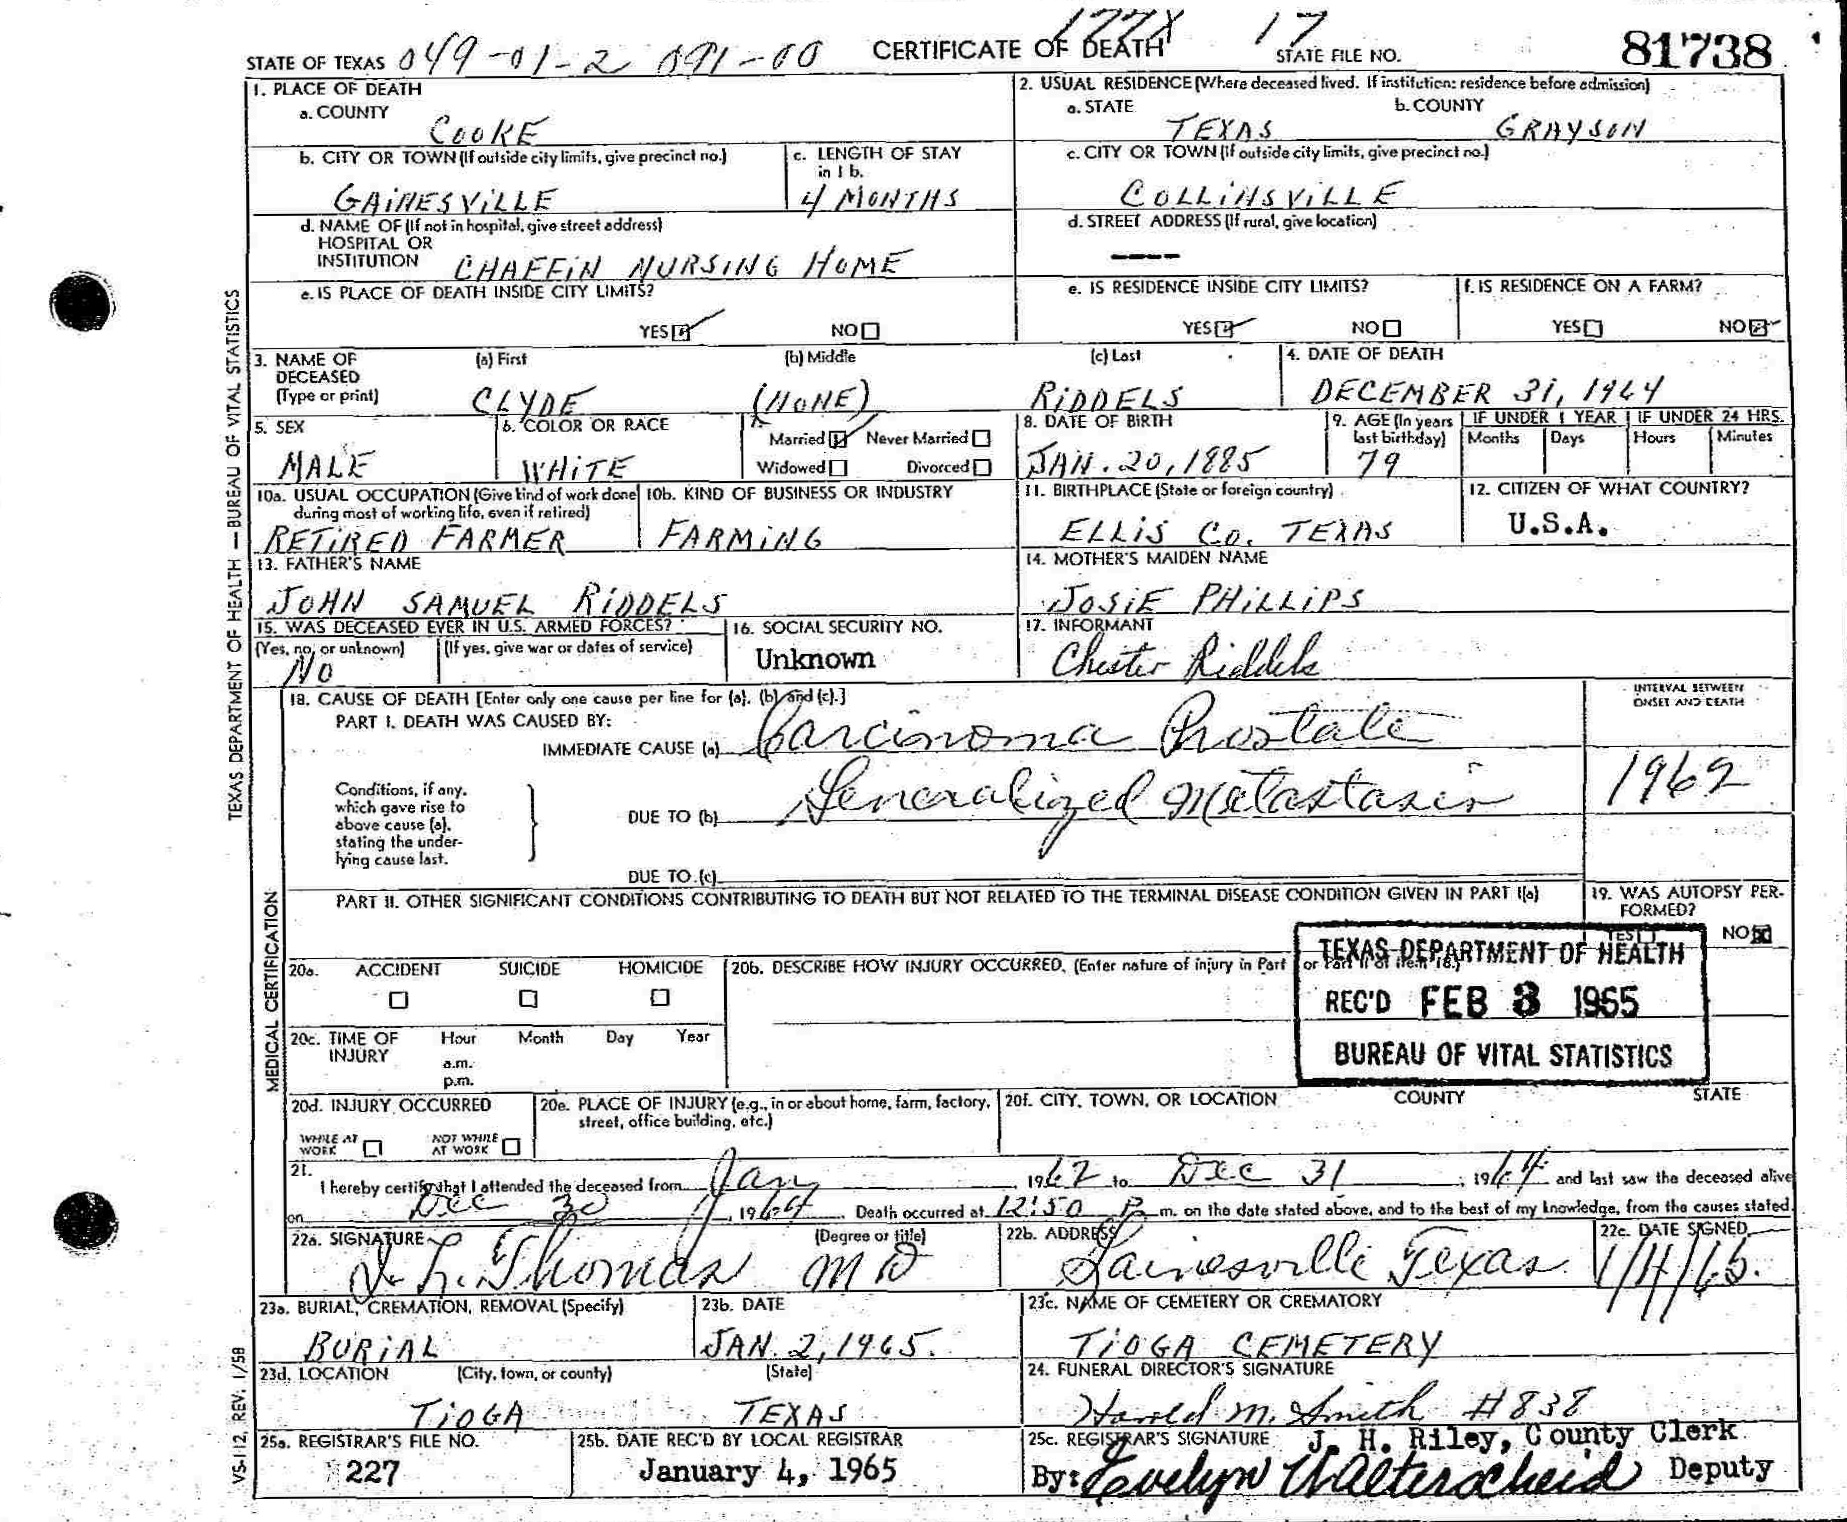 177X 17
STATE OF TEXAS 049-01-2 091-00 CERTIFICATE OF DEATH STATE FILE NO. 81738
1. PLACE OF DEATH
a. COUNTY
COOKE
2. USUAL RESIDENCE (Where deceased lived. If institution: residence before admission)
a. STATE b. COUNTY
TEXAS GRAYSON
b. CITY OR TOWN (If outside city limits, give precinct no.)
GAINESVILLE
c. LENGTH OF STAY
in 1 b.
4 MONTHS
c. CITY OR TOWN (If outside city limits, give precinct no.)
COLLINSVILLE
d. NAME OF (If not in hospital, give street address)
HOSPITAL OR
INSTITUTION CHAFFIN NURSING HOME
d. STREET ADDRESS (If rural, give location)
----
e. IS PLACE OF DEATH INSIDE CITY LIMITS?
YES NO
e. IS RESIDENCE INSIDE CITY LIMITS?
YES NO
f. IS RESIDENCE ON A FARM?
YES NO
3. NAME OF
DECEASED
(Type or print)
(a) First (b) Middle (c) Last
CLYDE (NONE) RIDDELS
4. DATE OF DEATH
DECEMBER 31, 1964
5. SEX
MALE
6. COLOR OR RACE
WHITE
7.
Married Never Married
Widowed Divorced
8. DATE OF BIRTH
JAN. 20, 1885
9. AGE (In years
last birthday)
79
IF UNDER 1 YEAR IF UNDER 24 HRS.
Months Days Hours Minutes
10a. USUAL OCCUPATION (Give kind of work done
during most of working life, even if retired)
RETIRED FARMER
10b. KIND OF BUSINESS OR INDUSTRY
FARMING
11. BIRTHPLACE (State or foreign country)
ELLIS CO. TEXAS
12. CITIZEN OF WHAT COUNTRY?
U.S.A.
13. FATHER'S NAME
JOHN SAMUEL RIDDELS
14. MOTHER'S MAIDEN NAME
JOSIE PHILLIPS
15. WAS DECEASED EVER IN U.S. ARMED FORCES?
(Yes, no, or unknown) (If yes, give war or dates of service)
NO
16. SOCIAL SECURITY NO.
Unknown
17. INFORMANT
Chester Riddels
18. CAUSE OF DEATH [Enter only one cause per line for (a), (b) and (c).]
PART I. DEATH WAS CAUSED BY:
IMMEDIATE CAUSE (a) Carcinoma Prostate
INTERVAL BETWEEN
ONSET AND DEATH
1962
Conditions, if any,
which gave rise to
above cause (a),
stating the under-
lying cause last.
DUE TO (b) Generalized Metastasis
DUE TO (c)
PART II. OTHER SIGNIFICANT CONDITIONS CONTRIBUTING TO DEATH BUT NOT RELATED TO THE TERMINAL DISEASE CONDITION GIVEN IN PART I(a)
19. WAS AUTOPSY PER-
FORMED?
YES NO
20a. ACCIDENT SUICIDE HOMICIDE
20b. DESCRIBE HOW INJURY OCCURRED. (Enter nature of injury in Part I or Part II of item 18.)
TEXAS DEPARTMENT OF HEALTH
REC'D FEB 3 1965
BUREAU OF VITAL STATISTICS
20c. TIME OF
INJURY
Hour Month Day Year
a.m.
p.m.
20d. INJURY OCCURRED
WHILE AT
WORK
NOT WHILE
AT WORK
20e. PLACE OF INJURY (e.g., in or about home, farm, factory,
street, office building, etc.)
20f. CITY, TOWN, OR LOCATION COUNTY STATE
21.
I hereby certify that I attended the deceased from Jan, 1962 to Dec 31, 1964 and last saw the deceased alive
on Dec 30, 1964. Death occurred at 12:50 P. m. on the date stated above, and to the best of my knowledge, from the causes stated.
22a. SIGNATURE (Degree or title)
J. L. Thomas MD
22b. ADDRESS
Gainesville Texas
22c. DATE SIGNED
1/4/65.
23a. BURIAL, CREMATION, REMOVAL (Specify)
BURIAL
23b. DATE
JAN. 2, 1965.
23c. NAME OF CEMETERY OR CREMATORY
TIOGA CEMETERY
23d. LOCATION (City, town, or county) (State)
TIOGA TEXAS
24. FUNERAL DIRECTOR'S SIGNATURE
Harold M. Smith #838
25a. REGISTRAR'S FILE NO.
227
25b. DATE REC'D BY LOCAL REGISTRAR
January 4, 1965
25c. REGISTRAR'S SIGNATURE J. H. Riley, County Clerk
By: Evelyn Walterscheid Deputy
TEXAS DEPARTMENT OF HEALTH — BUREAU OF VITAL STATISTICS
MEDICAL CERTIFICATION
VS-112, REV. 1/58